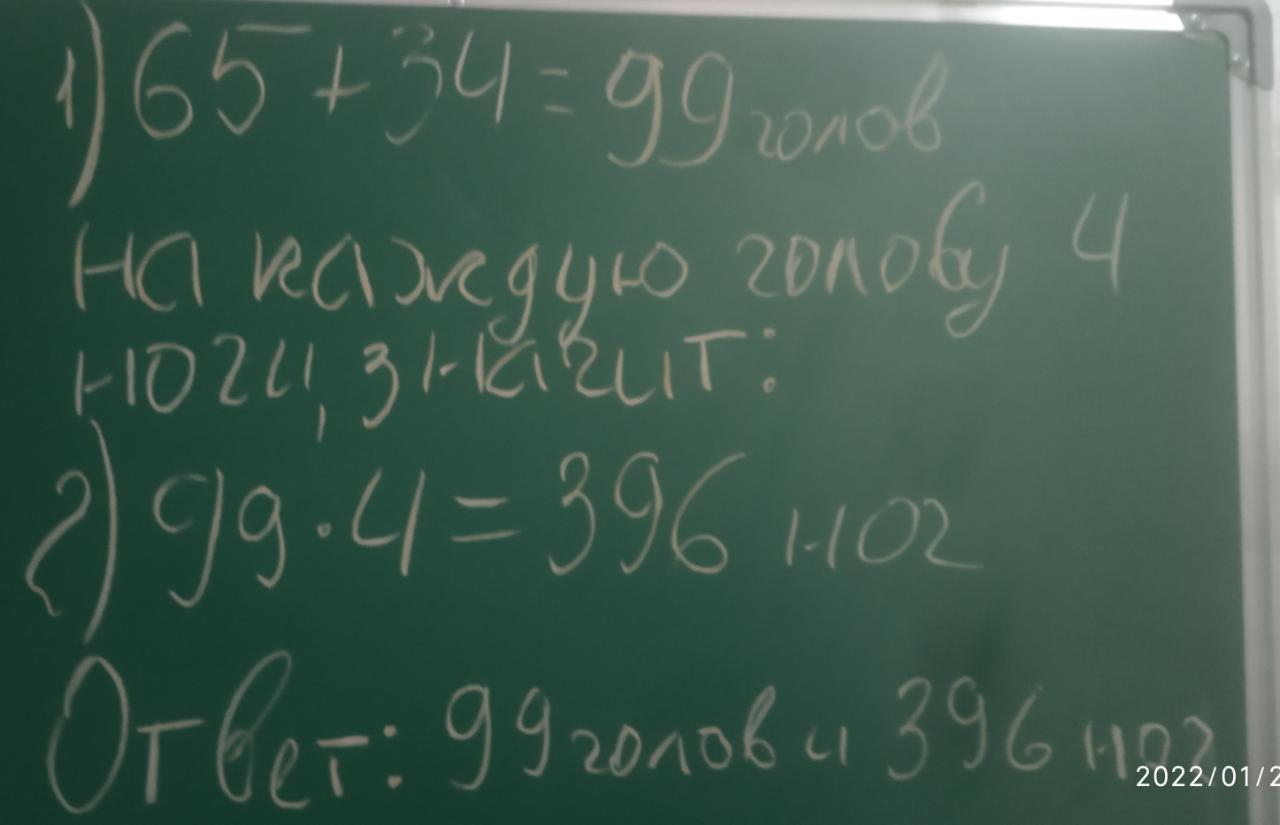 1) 65 + 34 = 99 голов
на каждую голову 4
ноги, значит:
2) 99 · 4 = 396 ног
Ответ: 99 голов и 396 ног
2022/01/2